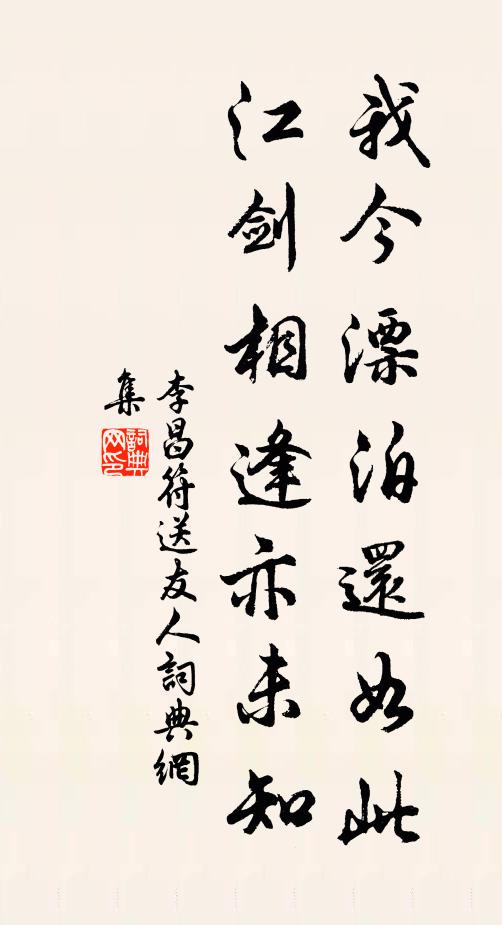 我今漂泊還如此
江剑相逢亦未知
李昌符送友人詞典網
集
詞典
网